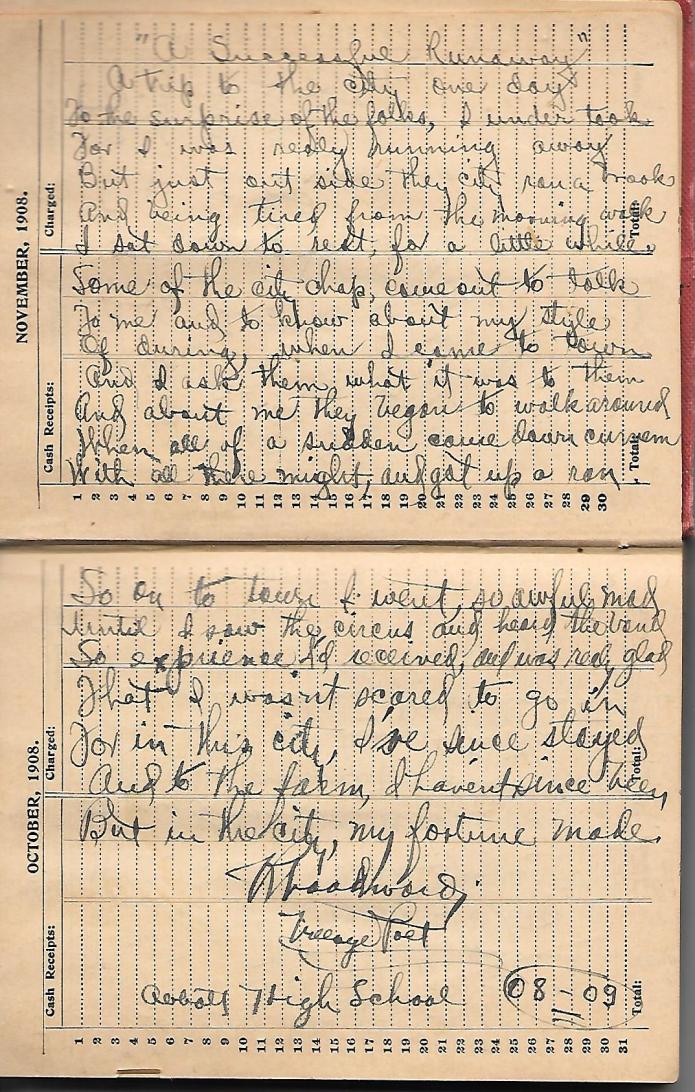 "A Successful Runaway"
A trip to the city one day
To the surprise of the folks, I under took
For I was really running away
But just out side they city ran a brook
And being tired from the morning walk
I sat down to rest, for a little while.
Some of the city chap, come out to talk
To me and to know about my style
Of during, when I come to town
And I ask them what it was to them
And about me they began to walk around
When all of a sudden come down
With all there might, and got up a ran.
NOVEMBER, 1908.
Charged:
Cash Receipts:
Total:
Total:
1 2 3 4 5 6 7 8 9 10 11 12 13 14 15 16 17 18 19 20 21 22 23 24 25 26 27 28 29 30
So on to town I went, so awful mad
Until I saw the circus and heard the band
So expirence I'd received, and was real glad
That I wasn't scared to go in
For in this city, I've since stayed
And to the farm, I havent since been,
But in the city, my fortune made.
Woodward,
Poet
Abbott High School
08 - 09
OCTOBER, 1908.
Charged:
Cash Receipts:
Total:
Total:
1 2 3 4 5 6 7 8 9 10 11 12 13 14 15 16 17 18 19 20 21 22 23 24 25 26 27 28 29 30 31